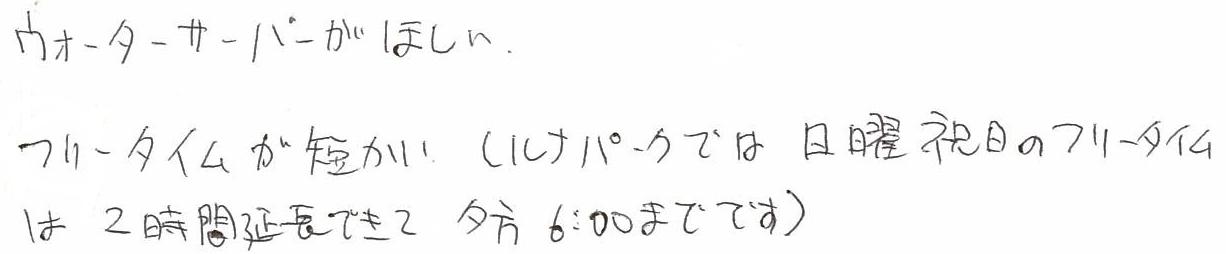 ウォーターサーバーがほしい.
フリータイムが短かい (ルナパークでは 日曜祝日のフリータイム
は 2時間延長できて 夕方 6:00までです)